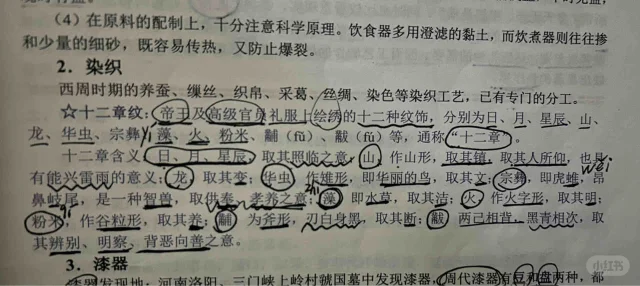 (4)在原料的配制上，十分注意科学原理。饮食器多用澄滤的黏土，而炊煮器则往往掺
和少量的细砂，既容易传热，又防止爆裂。
2．染织
西周时期的养蚕、缫丝、织帛、采葛、丝绸、染色等染织工艺，已有专门的分工。
☆十二章纹：帝王及高级官员礼服上绘绣的十二种纹饰，分别为日、月、星辰、山、
龙、华虫、宗彝、藻、火、粉米、黼（fǔ）、黻（fú）等，通称“十二章”。
十二章含义：日、月、星辰，取其照临之意；山，作山形，取其镇，取其人所仰，也具
wěi
有能兴雷雨的意义；龙，取其变；华虫，作雉形，即华丽的鸟，取其文；宗彝，即虎蜼，昂
zhì
鼻岐尾，是一种智兽，取供奉、孝养之意；藻，即水草，取其洁；火，作火字形，取其明；
粉米，作谷粒形，取其养；黼，为斧形，刃白身黑，取其断；黻，两己相背，黑青相次，取
其辨别、明察、背恶向善之意。
3．漆器
漆器发现地：河南洛阳、三门峡上岭村虢国墓中发现漆器，周代漆器有豆和盘两种，都
小红书